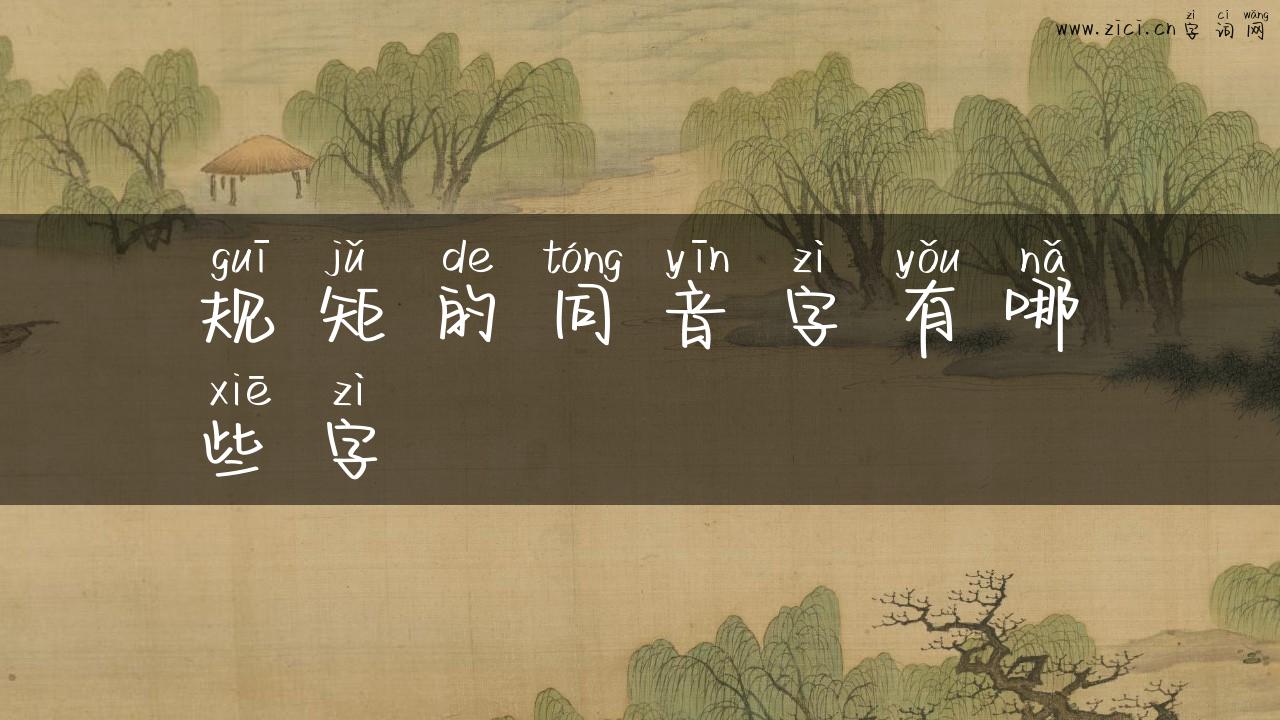 zì cí wǎng
www.zici.cn 字 词 网
guī jǔ de tóng yīn zì yǒu nǎ
规 矩 的 同 音 字 有 哪
xiē zì
些 字